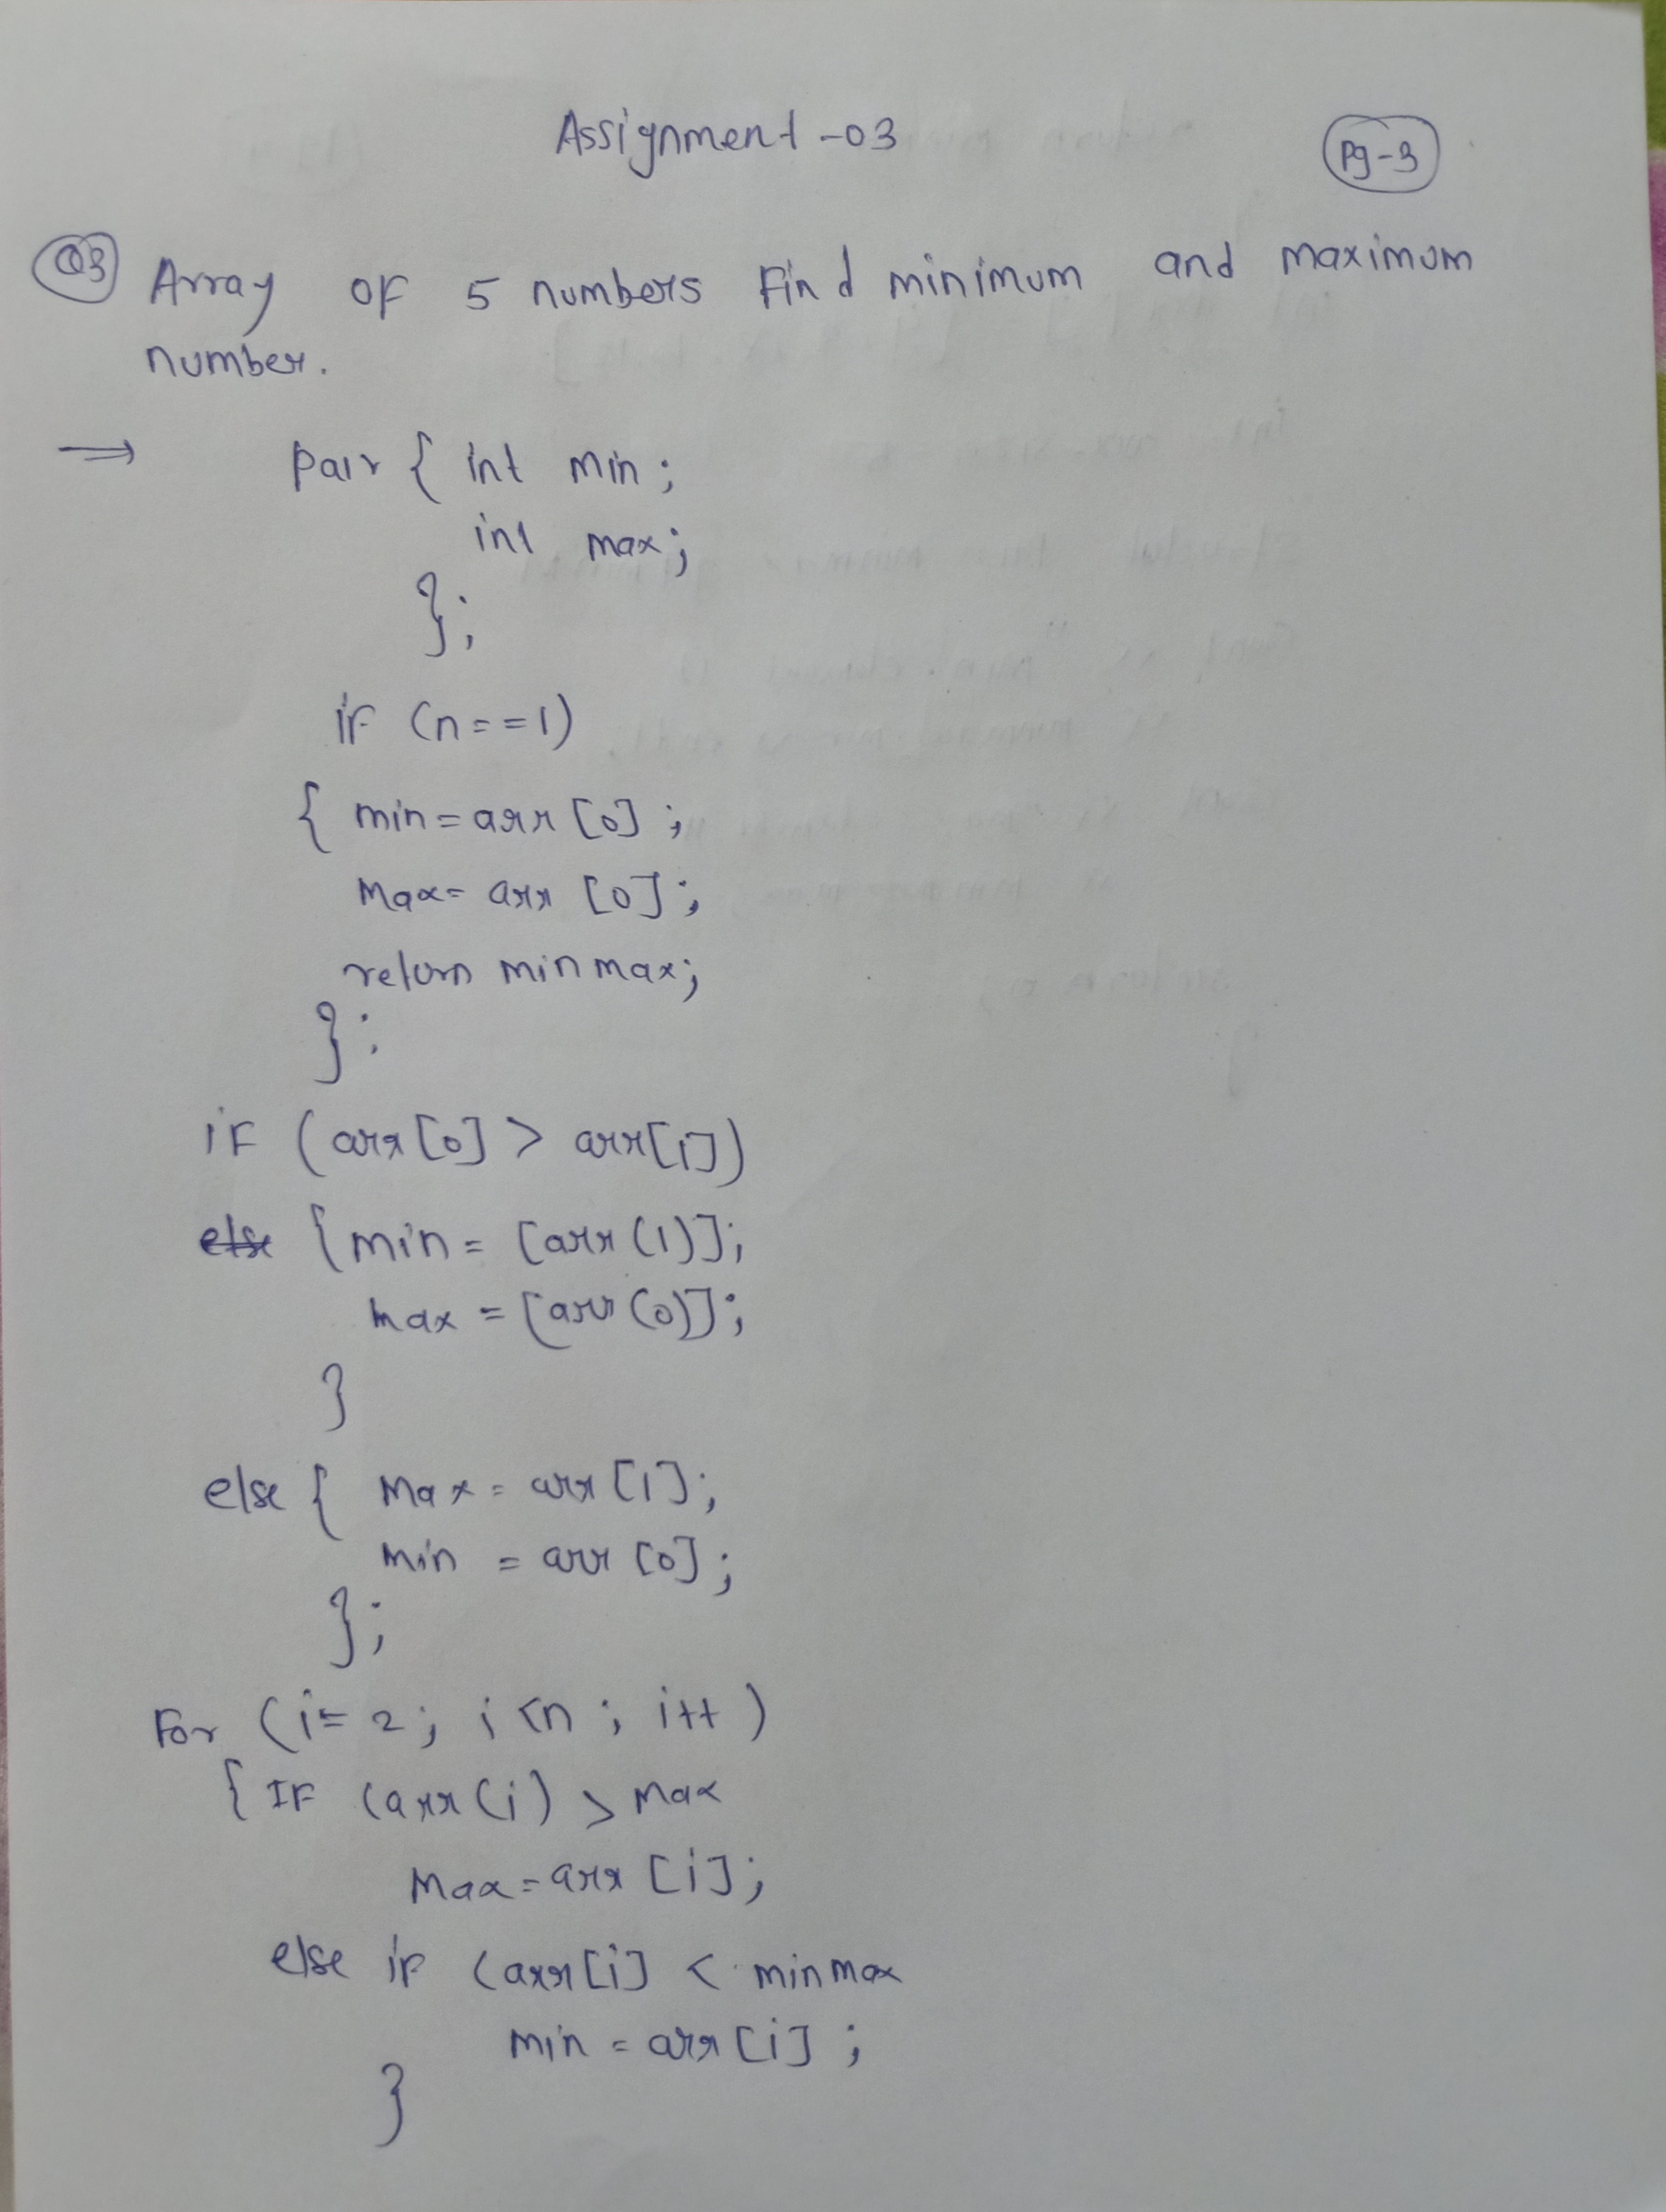 Assignment -03
Pg-3
Q3 Array of 5 numbers Find minimum and maximum
number.
⇒ pair { int min ;
int max ;
};
if (n==1)
{ min = arr [0] ;
Max = arr [0] ;
return minmax;
};
if (arr [0] > arr[1])
else { min = [arr (1)];
max = [arr (0)];
}
else { max = arr [1];
min = arr [0] ;
};
For (i= 2; i <n ; i++ )
{ IF (arr (i) > max
Max = arr [i] ;
else if (arr [i] < minmax
min = arr [i] ;
}